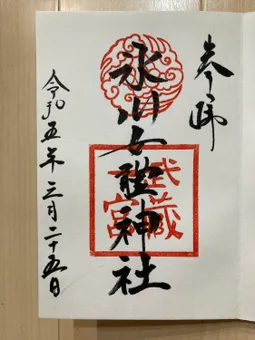 奉拝
武蔵
一宮
氷川女體神社
令和五年三月二十五日